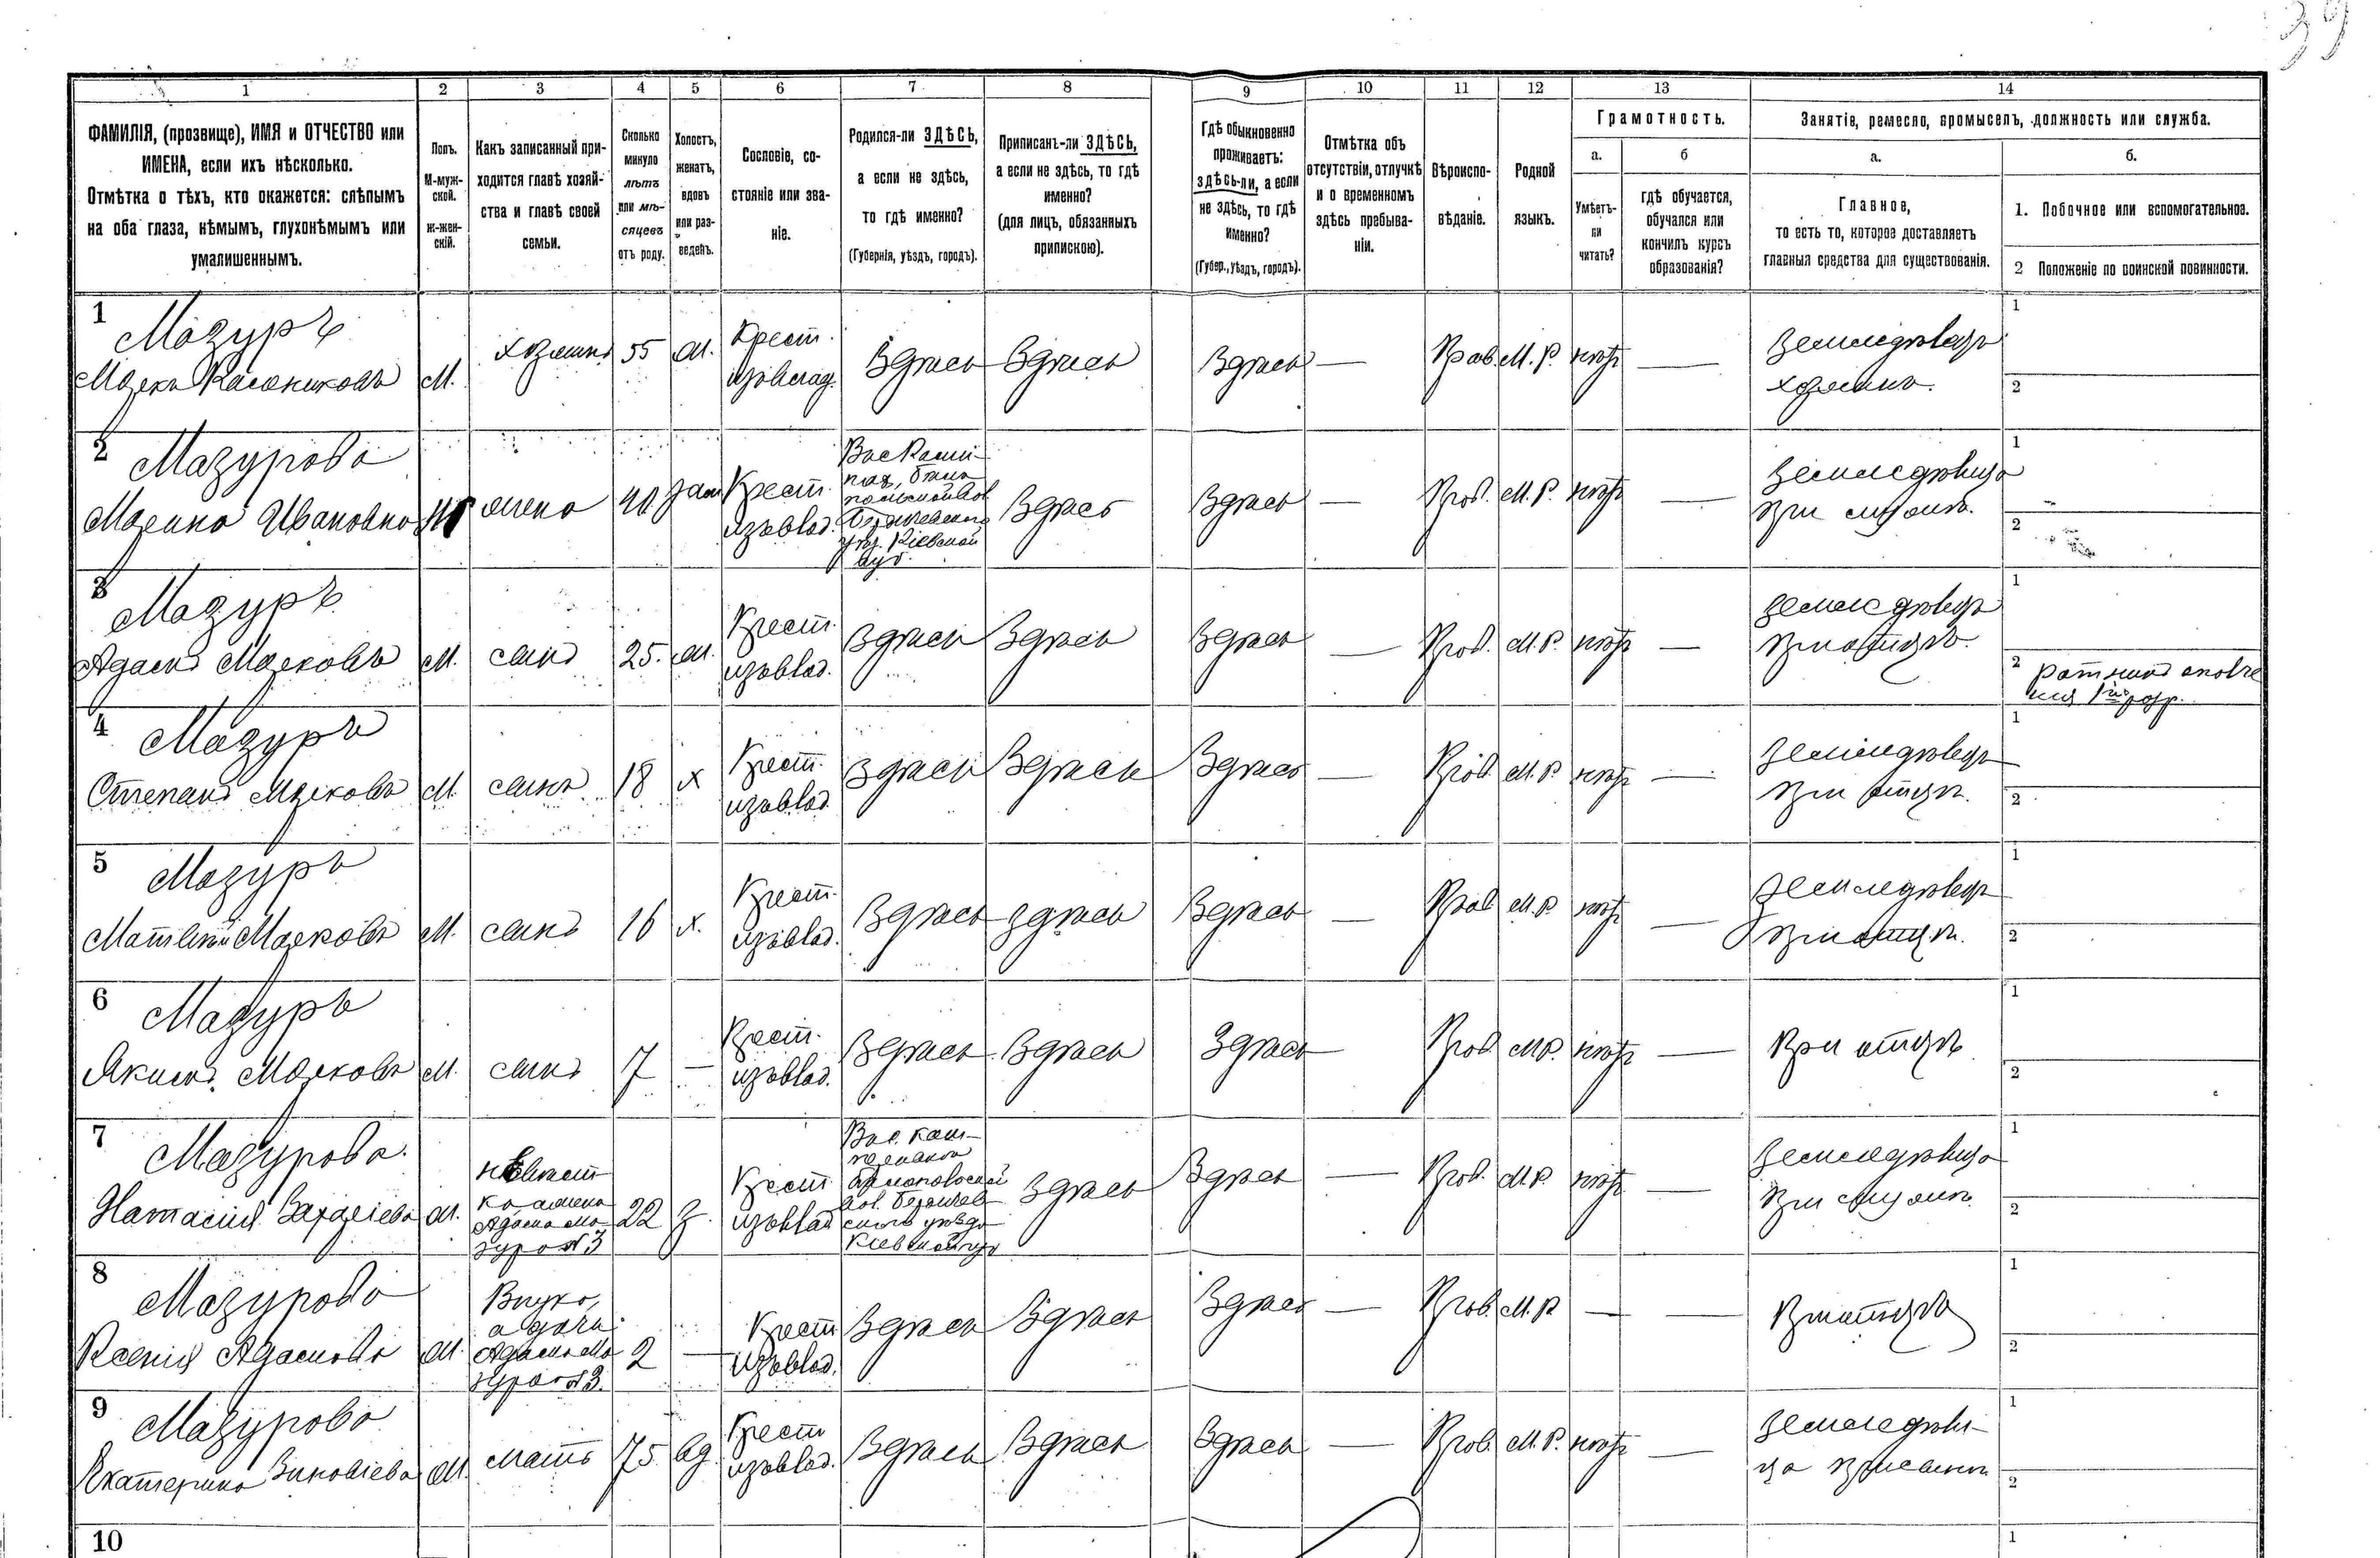 39
1 2 3 4 5 6 7 8 9 10 11 12 13 14
ФАМИЛІЯ, (прозвище), ИМЯ и ОТЧЕСТВО или
ИМЕНА, если ихъ нѣсколько.
Отмѣтка о тѣхъ, кто окажется: слѣпымъ
на оба глаза, нѣмымъ, глухонѣмымъ или
умалишеннымъ.
Полъ.
М-муж-
ской.
ж-жен-
скій.
Какъ записанный при-
ходится главѣ хозяй-
ства и главѣ своей
семьи.
Сколько
минуло
лѣтъ
или мѣ-
сяцевъ
отъ роду.
Холостъ,
женатъ,
вдовъ
или раз-
веденъ.
Сословіе, со-
стояніе или зва-
ніе.
Родился-ли ЗДѢСЬ,
а если не здѣсь,
то гдѣ именно?
(Губернія, уѣздъ, городъ).
Приписанъ-ли ЗДѢСЬ,
а если не здѣсь, то гдѣ
именно?
(для лицъ, обязанныхъ
припискою).
Гдѣ обыкновенно
проживаетъ:
здѣсь-ли, а если
не здѣсь, то гдѣ
именно?
(Губер., уѣздъ, городъ).
Отмѣтка объ
отсутствіи, отлучкѣ
и о временномъ
здѣсь пребыва-
ніи.
Вѣроиспо-
вѣданіе.
Родной
языкъ.
Грамотность.
а.
Умѣетъ-
ли
читать?
б
гдѣ обучается,
обучался или
кончилъ курсъ
образованія?
Занятіе, ремесло, промыселъ, должность или служба.
а.
Главное,
то есть то, которое доставляетъ
главныя средства для существованія.
б.
1. Побочное или вспомогательное.
2 Положеніе по воинской повинности.
1
Мазуръ
М. хозяинъ 55 ж. Крест.
Здѣсь Здѣсь Здѣсь — Прав. М. Р. нѣтъ —
Земледѣлецъ
хозяинъ.
1
2
2 Мазурова
Марина Ивановна ж жена зам Крест.
изъ влад.
уѣз. Кіевской
губ.
Здѣсь Здѣсь — Прав. М. Р. нѣтъ —
Земледѣлица
при мужѣ.
1
2
3 Мазуръ
Адамъ Марковъ М. сынъ 25. ж. Крест.
изъ влад.
Здѣсь Здѣсь Здѣсь — Прав. М. Р. нѣтъ —
Земледѣлецъ
при отцѣ.
1
2 Ратникъ ополче
нія 1го разр.
4 Мазуръ
Степанъ Марковъ М. сынъ 18 х Крест.
изъ влад.
Здѣсь Здѣсь Здѣсь — Прав. М. Р. нѣтъ —
Земледѣлецъ
при отцѣ.
1
2
5 Мазуръ
Матвѣй Марковъ М. сынъ 16 х. Крест.
изъ влад.
Здѣсь здѣсь Здѣсь — Прав. М. Р. нѣтъ —
Земледѣлецъ
при отцѣ.
1
2
6 Мазуръ
Якимъ Марковъ М. сынъ 7 — Крест.
изъ влад.
Здѣсь Здѣсь Здѣсь Прав. М. Р. нѣтъ —
При отцѣ
1
2
7 Мазурова
Ж. невѣст
ка жена
Адама Ма
зура №3
22 з. Крест
изъ влад
Кіевской губ
Здѣсь Здѣсь — Прав. М. Р. нѣтъ —
Земледѣлица
при мужѣ.
1
2
8 Мазурова
Ксенія Адамова ж. Внука,
а дочь
Адама Ма
зура №3.
2 — Крест
изъ влад.
Здѣсь Здѣсь Здѣсь — Прав. М. Р — —
При отцѣ
1
2
9 Мазурова
Екатерина Зиновіева ж. мать 75 вд. Крест
изъ влад.
Здѣсь Здѣсь Здѣсь — Прав. М. Р. нѣтъ —
Земледѣли-
ца при сынѣ
1
2
10
1